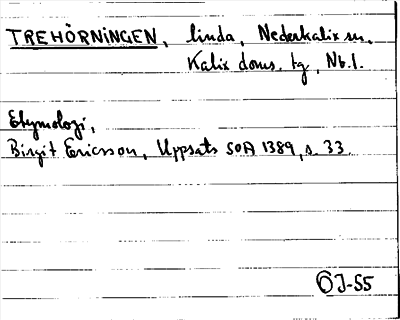 TREHÖRNINGEN, linda, Nederkalix sn,
Kalix doms. tg, Nb.l.
Etymologi,
Birgit Ericsson, Uppsats SOA 1389, s. 33.
ÖJ-55